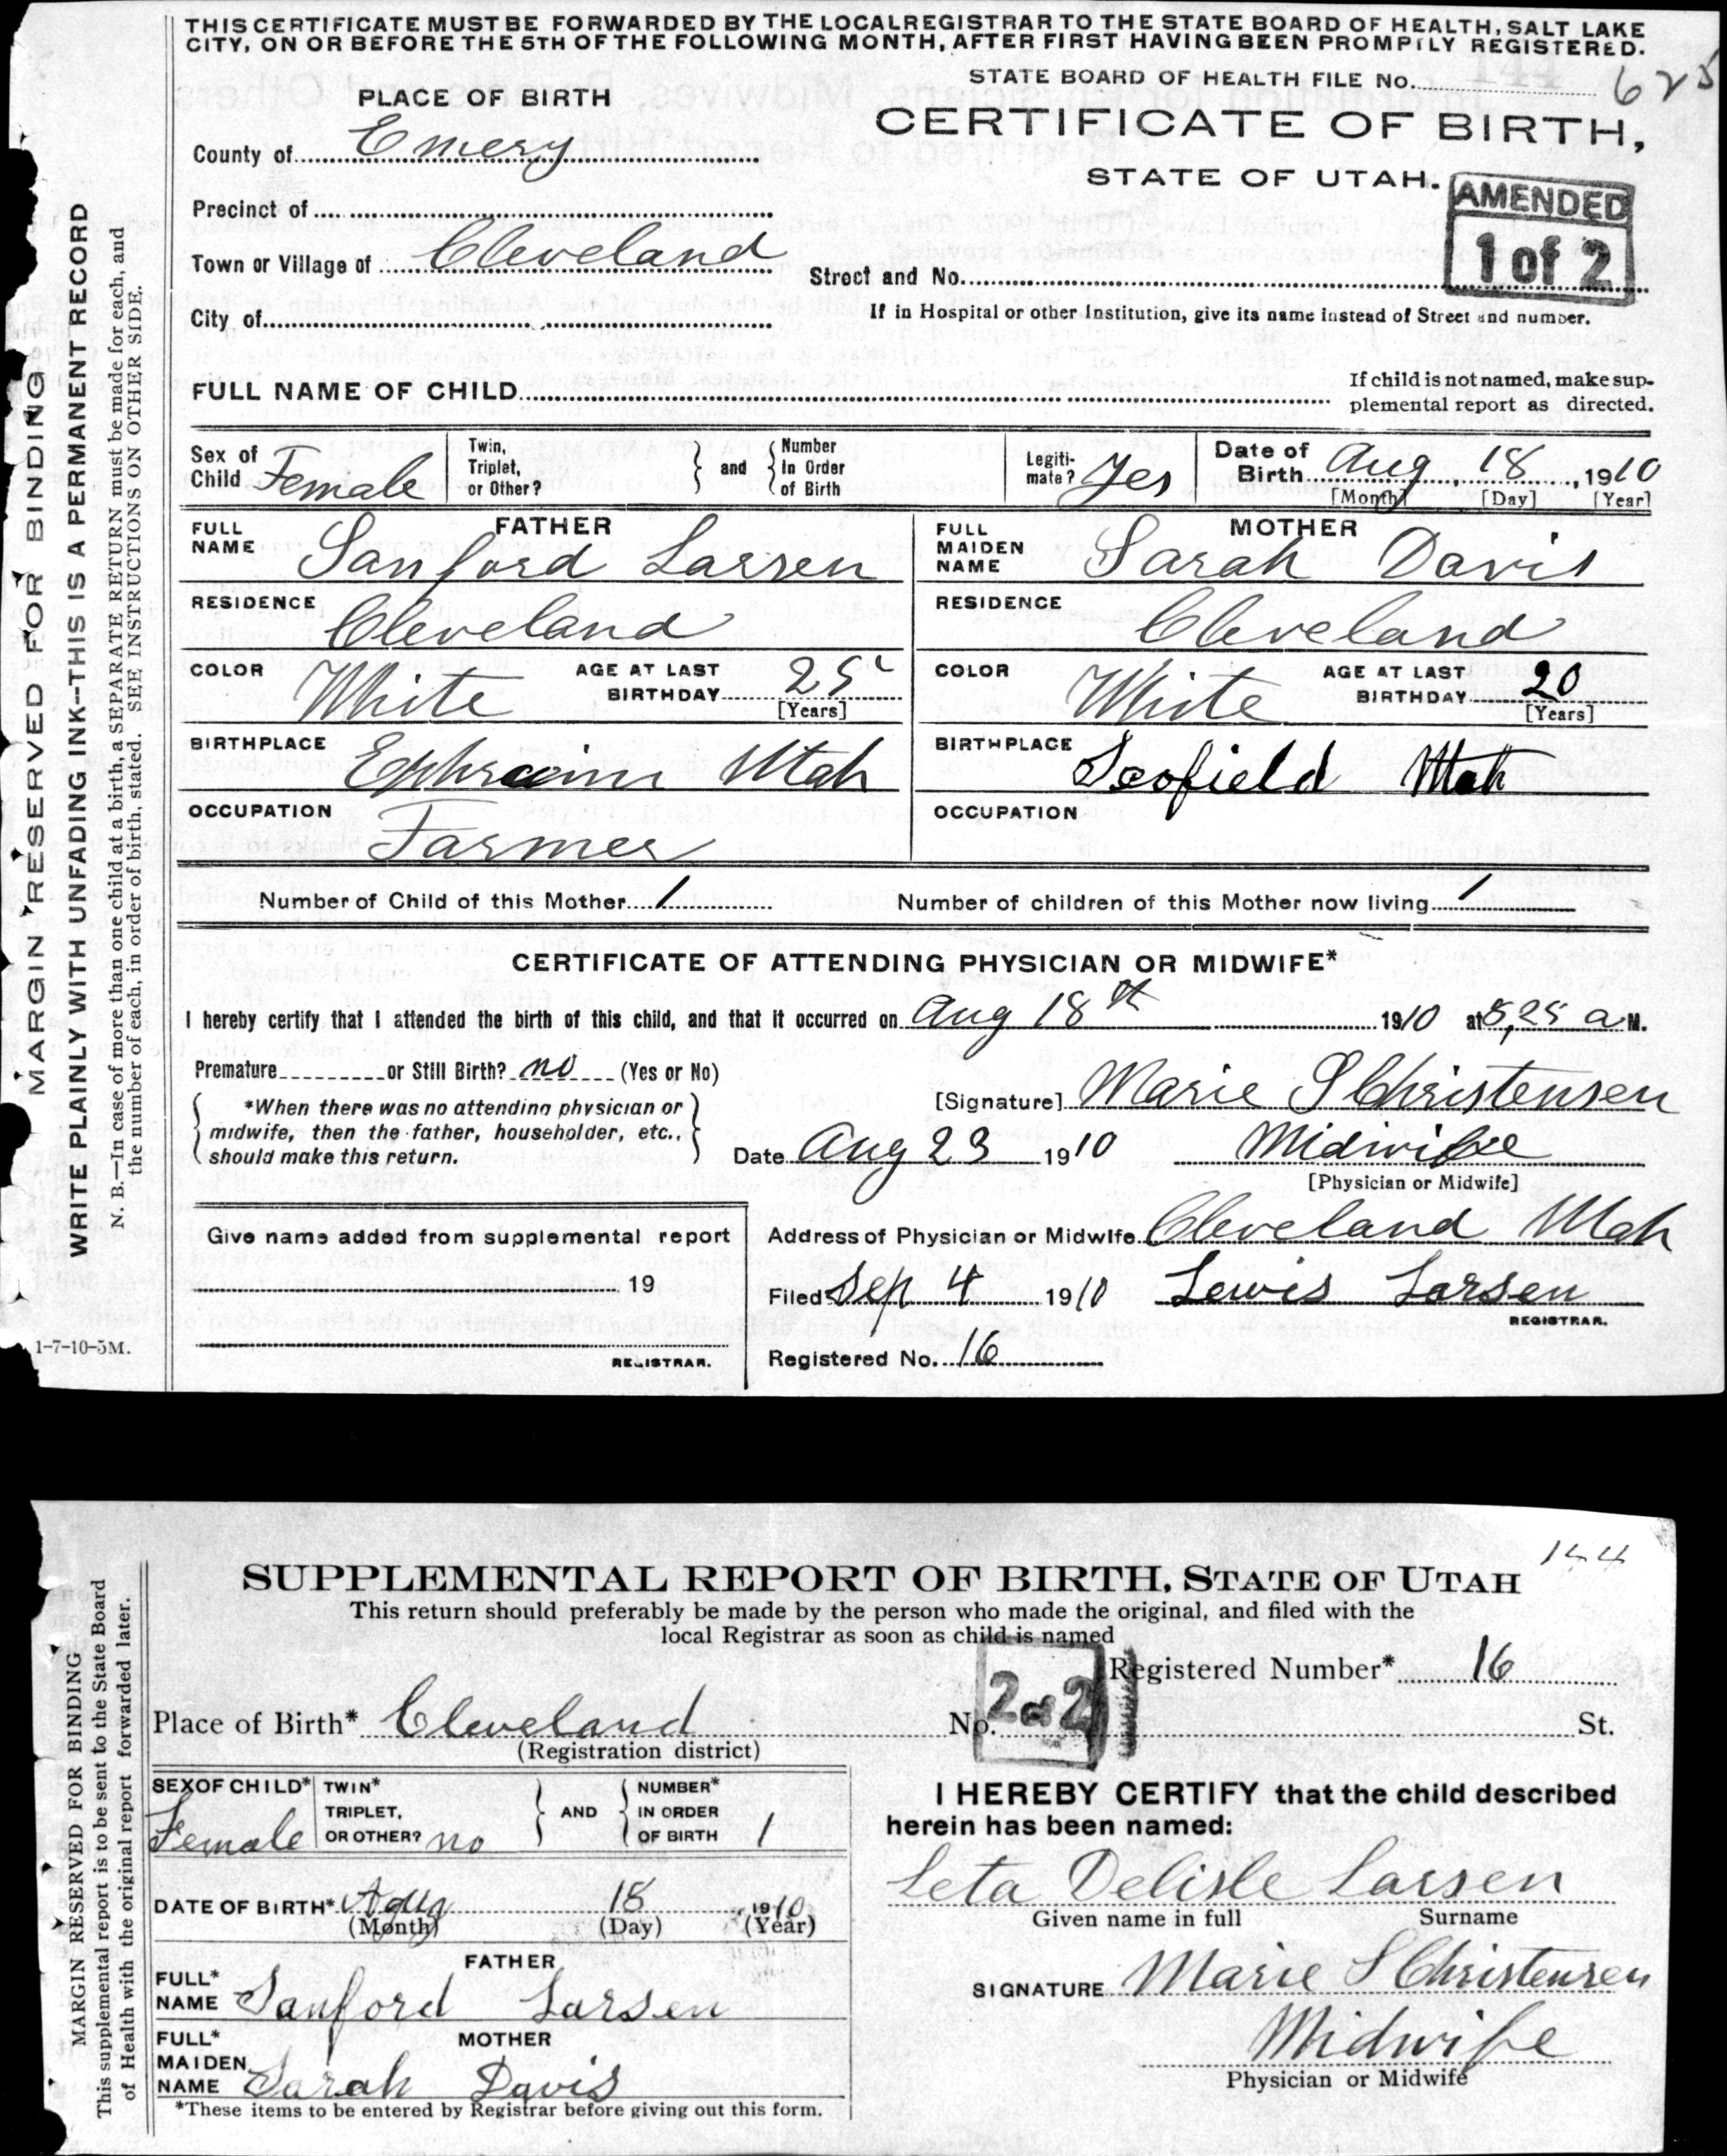 THIS CERTIFICATE MUST BE FORWARDED BY THE LOCAL REGISTRAR TO THE STATE BOARD OF HEALTH, SALT LAKE
CITY, ON OR BEFORE THE 5TH OF THE FOLLOWING MONTH, AFTER FIRST HAVING BEEN PROMPTLY REGISTERED.
STATE BOARD OF HEALTH FILE No. 144 625
PLACE OF BIRTH
CERTIFICATE OF BIRTH,
STATE OF UTAH.
AMENDED
1 of 2
County of Emery
Precinct of
Town or Village of Cleveland
Street and No.
City of
If in Hospital or other Institution, give its name instead of Street and number.
FULL NAME OF CHILD
If child is not named, make sup-
plemental report as directed.
Sex of Child Female
Twin, Triplet, or Other?
and
Number In Order of Birth
Legiti-mate? Yes
Date of Birth Aug 18, 1910
[Month] [Day] [Year]
FATHER
FULL NAME Sanford Larsen
RESIDENCE Cleveland
COLOR White AGE AT LAST BIRTHDAY 25
[Years]
BIRTHPLACE Ephraim Utah
OCCUPATION Farmer
MOTHER
FULL MAIDEN NAME Sarah Davis
RESIDENCE Cleveland
COLOR White AGE AT LAST BIRTHDAY 20
[Years]
BIRTHPLACE Scofield Utah
OCCUPATION
Number of Child of this Mother 1 Number of children of this Mother now living 1
CERTIFICATE OF ATTENDING PHYSICIAN OR MIDWIFE*
I hereby certify that I attended the birth of this child, and that it occurred on Aug 18th 1910 at 5,25 a M.
Premature or Still Birth? no (Yes or No)
*When there was no attending physician or
midwife, then the father, householder, etc.,
should make this return.
[Signature] Marie S Christensen
Date Aug 23 1910 Midwife
[Physician or Midwife]
Give name added from supplemental report
19
REGISTRAR.
Address of Physician or Midwife Cleveland Utah
Filed Sep 4 1910 Lewis Larsen
REGISTRAR.
Registered No. 16
MARGIN RESERVED FOR BINDING
WRITE PLAINLY WITH UNFADING INK--THIS IS A PERMANENT RECORD
N. B.—In case of more than one child at a birth, a SEPARATE RETURN must be made for each, and
the number of each, in order of birth, stated. SEE INSTRUCTIONS ON OTHER SIDE.
1-7-10-5M.
144
SUPPLEMENTAL REPORT OF BIRTH, STATE OF UTAH
This return should preferably be made by the person who made the original, and filed with the
local Registrar as soon as child is named
2 of 2
Registered Number* 16
Place of Birth* Cleveland No. St.
(Registration district)
SEX OF CHILD* Female
TWIN* TRIPLET, OR OTHER? no
AND
NUMBER* IN ORDER OF BIRTH 1
DATE OF BIRTH* Aug 18, 1910
(Month) (Day) (Year)
FATHER
FULL* NAME Sanford Larsen
MOTHER
FULL* MAIDEN NAME Sarah Davis
*These items to be entered by Registrar before giving out this form.
I HEREBY CERTIFY that the child described
herein has been named:
Leta Delisle Larsen
Given name in full Surname
SIGNATURE Marie S Christensen
Midwife
Physician or Midwife
MARGIN RESERVED FOR BINDING
This supplemental report is to be sent to the State Board
of Health with the original report forwarded later.